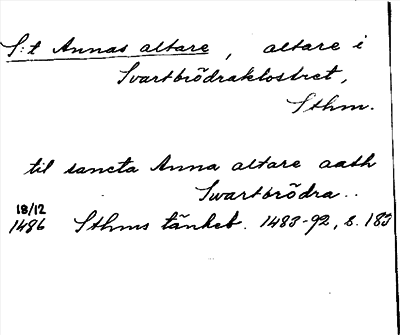 S:t Annas altare, altare i
Svartbrödraklostret,
Sthm.
til sancta Anna altare aath
Swartbrödra..
18/12
1486 Sthms tänkeb. 1483-92, s. 183